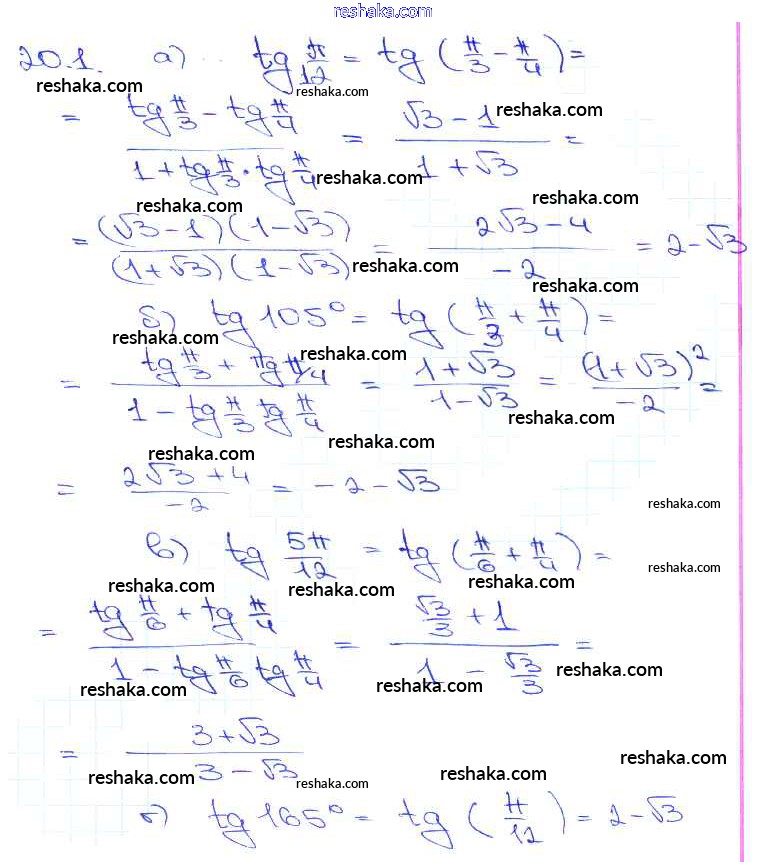 reshaka.com
20.1. а) tg π/12 = tg (π/3 - π/4) =
reshaka.com reshaka.com reshaka.com
= (tg π/3 - tg π/4)/(1 + tg π/3 · tg π/4) = (√3 - 1)/(1 + √3) =
reshaka.com reshaka.com reshaka.com
= ((√3 - 1)(1 - √3))/((1 + √3)(1 - √3)) = (2√3 - 4)/(-2) = 2 - √3
reshaka.com reshaka.com
б) tg 105° = tg (π/3 + π/4) =
reshaka.com reshaka.com reshaka.com
= (tg π/3 + tg π/4)/(1 - tg π/3 tg π/4) = (1 + √3)/(1 - √3) = (1 + √3)²/(-2) =
reshaka.com reshaka.com
= (2√3 + 4)/(-2) = -2 - √3
reshaka.com reshaka.com
в) tg 5π/12 = tg (π/6 + π/4) =
reshaka.com reshaka.com reshaka.com
= (tg π/6 + tg π/4)/(1 - tg π/6 tg π/4) = (√3/3 + 1)/(1 - √3/3) =
reshaka.com reshaka.com reshaka.com
= (3 + √3)/(3 - √3)
reshaka.com reshaka.com reshaka.com reshaka.com
г) tg 165° = tg (π/12) = 2 - √3